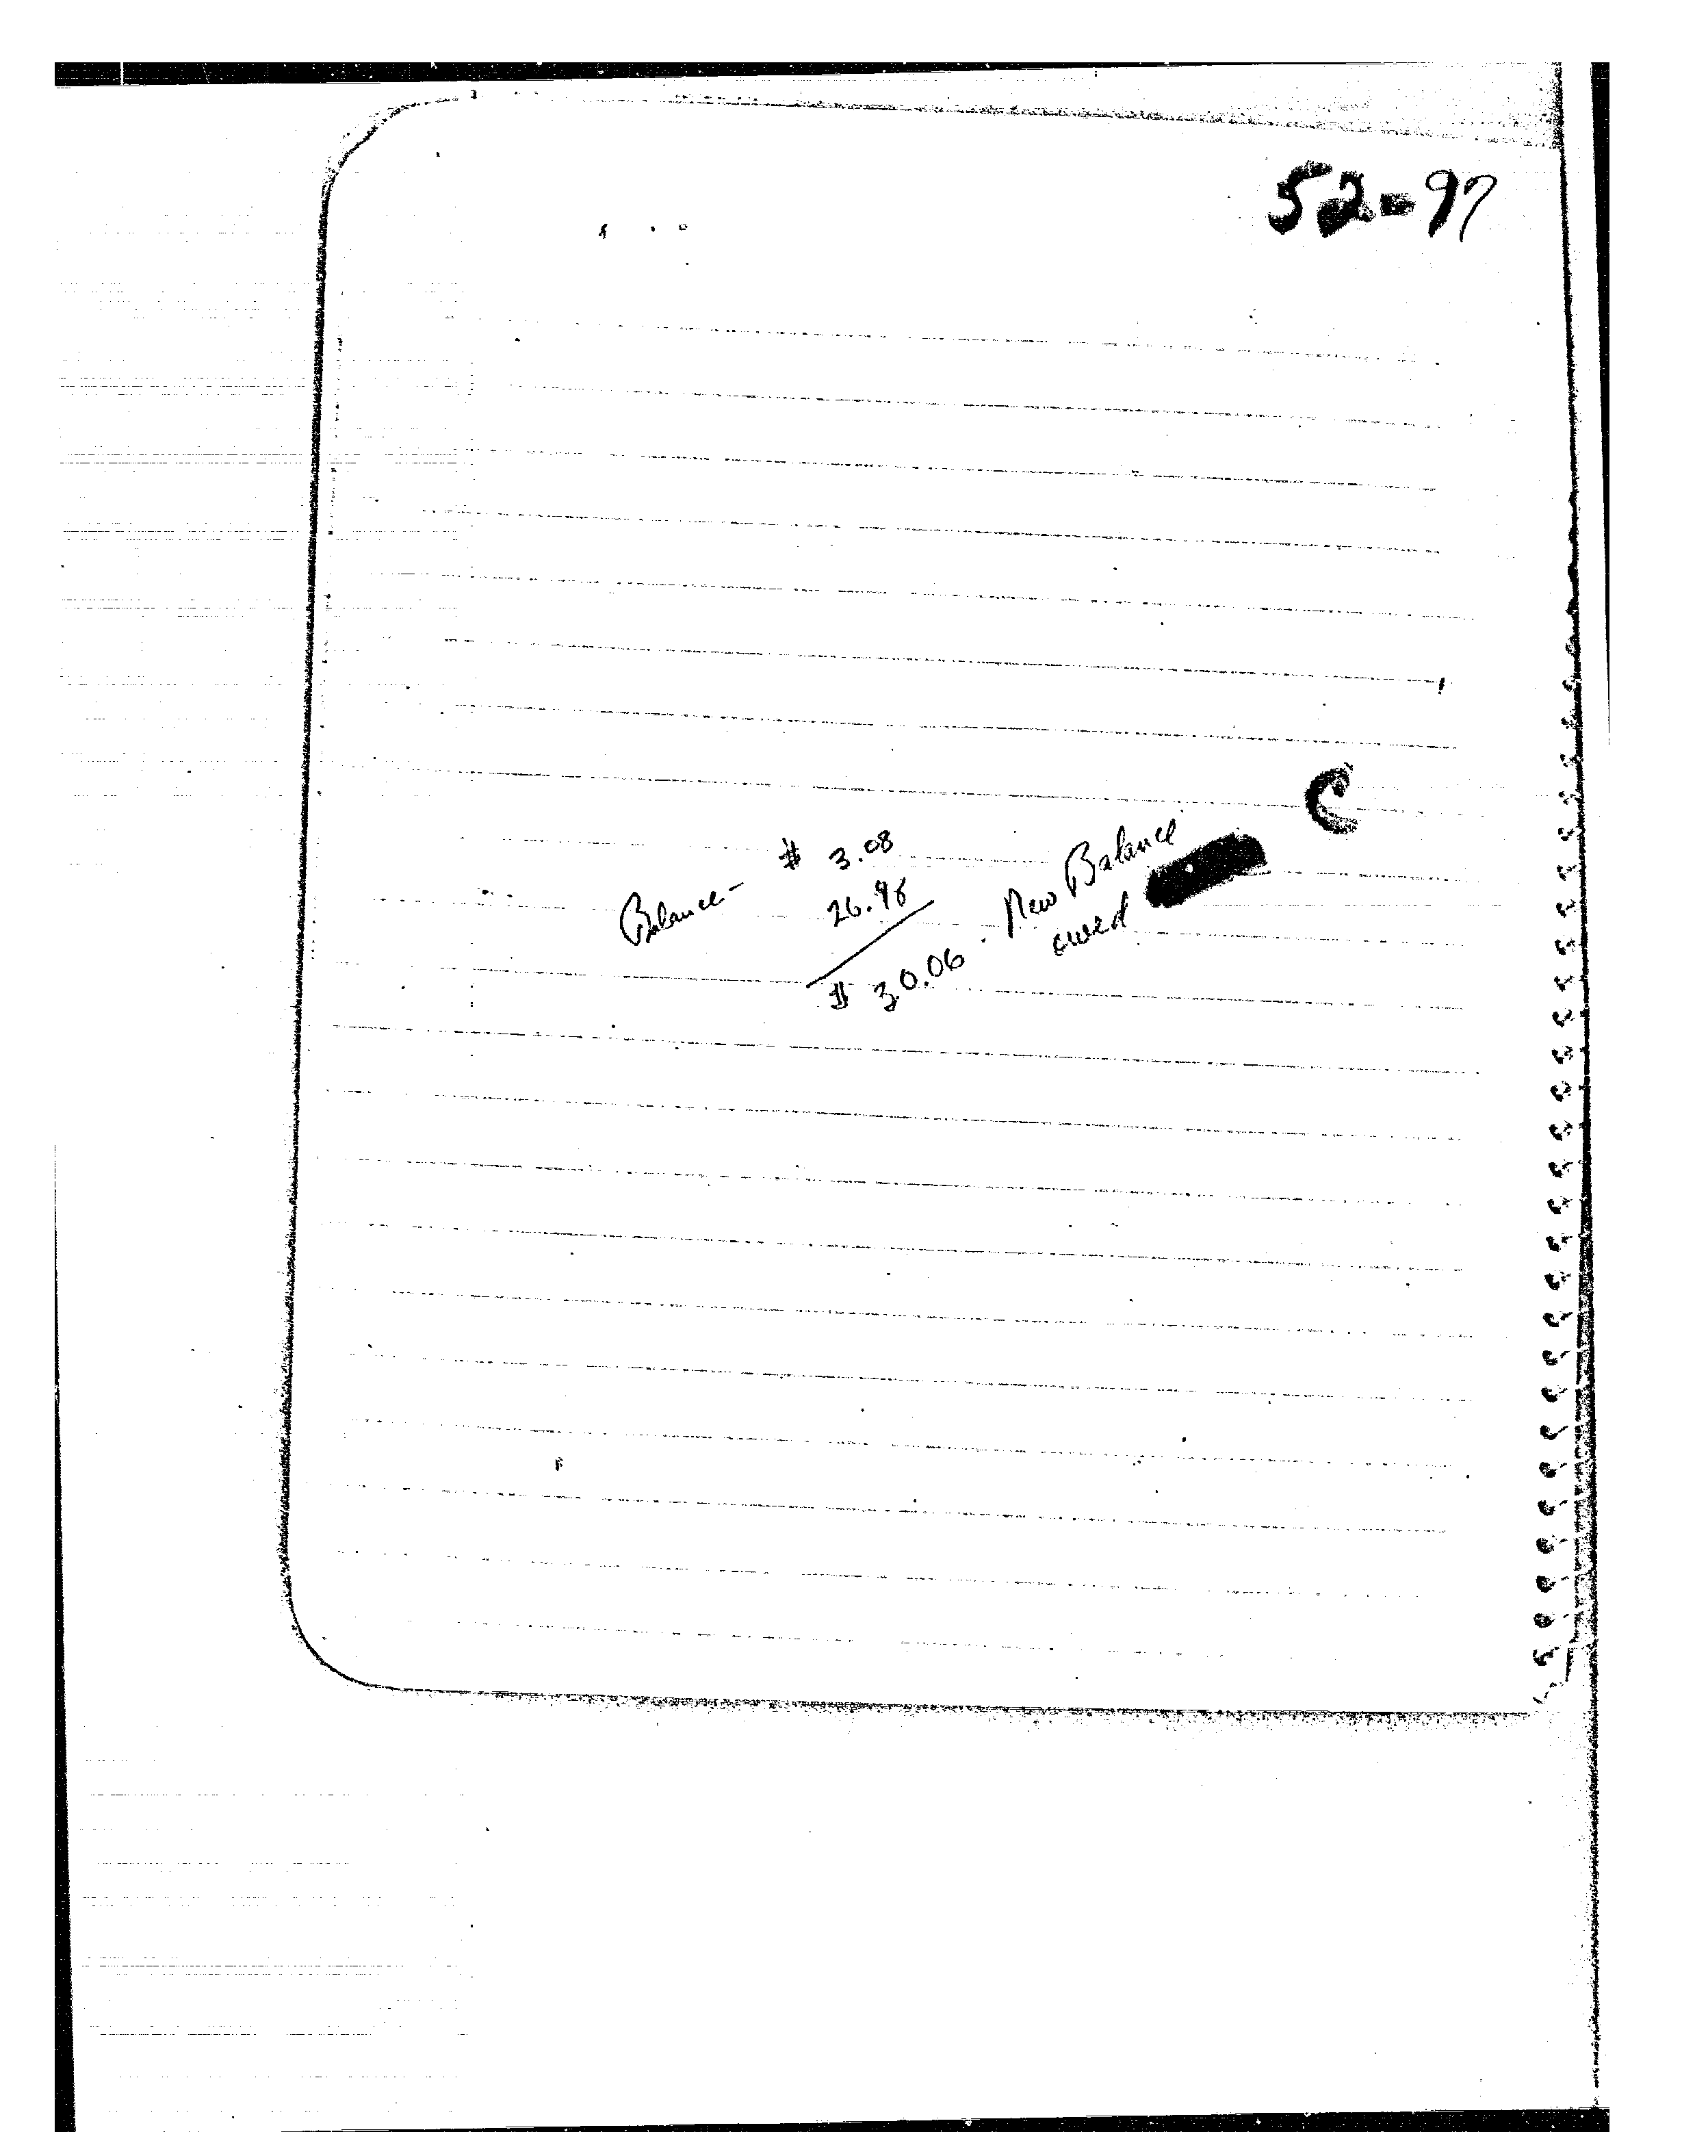 52-97
C
Balance- $ 3.08
26.98
$ 30.06 - New Balance
owed